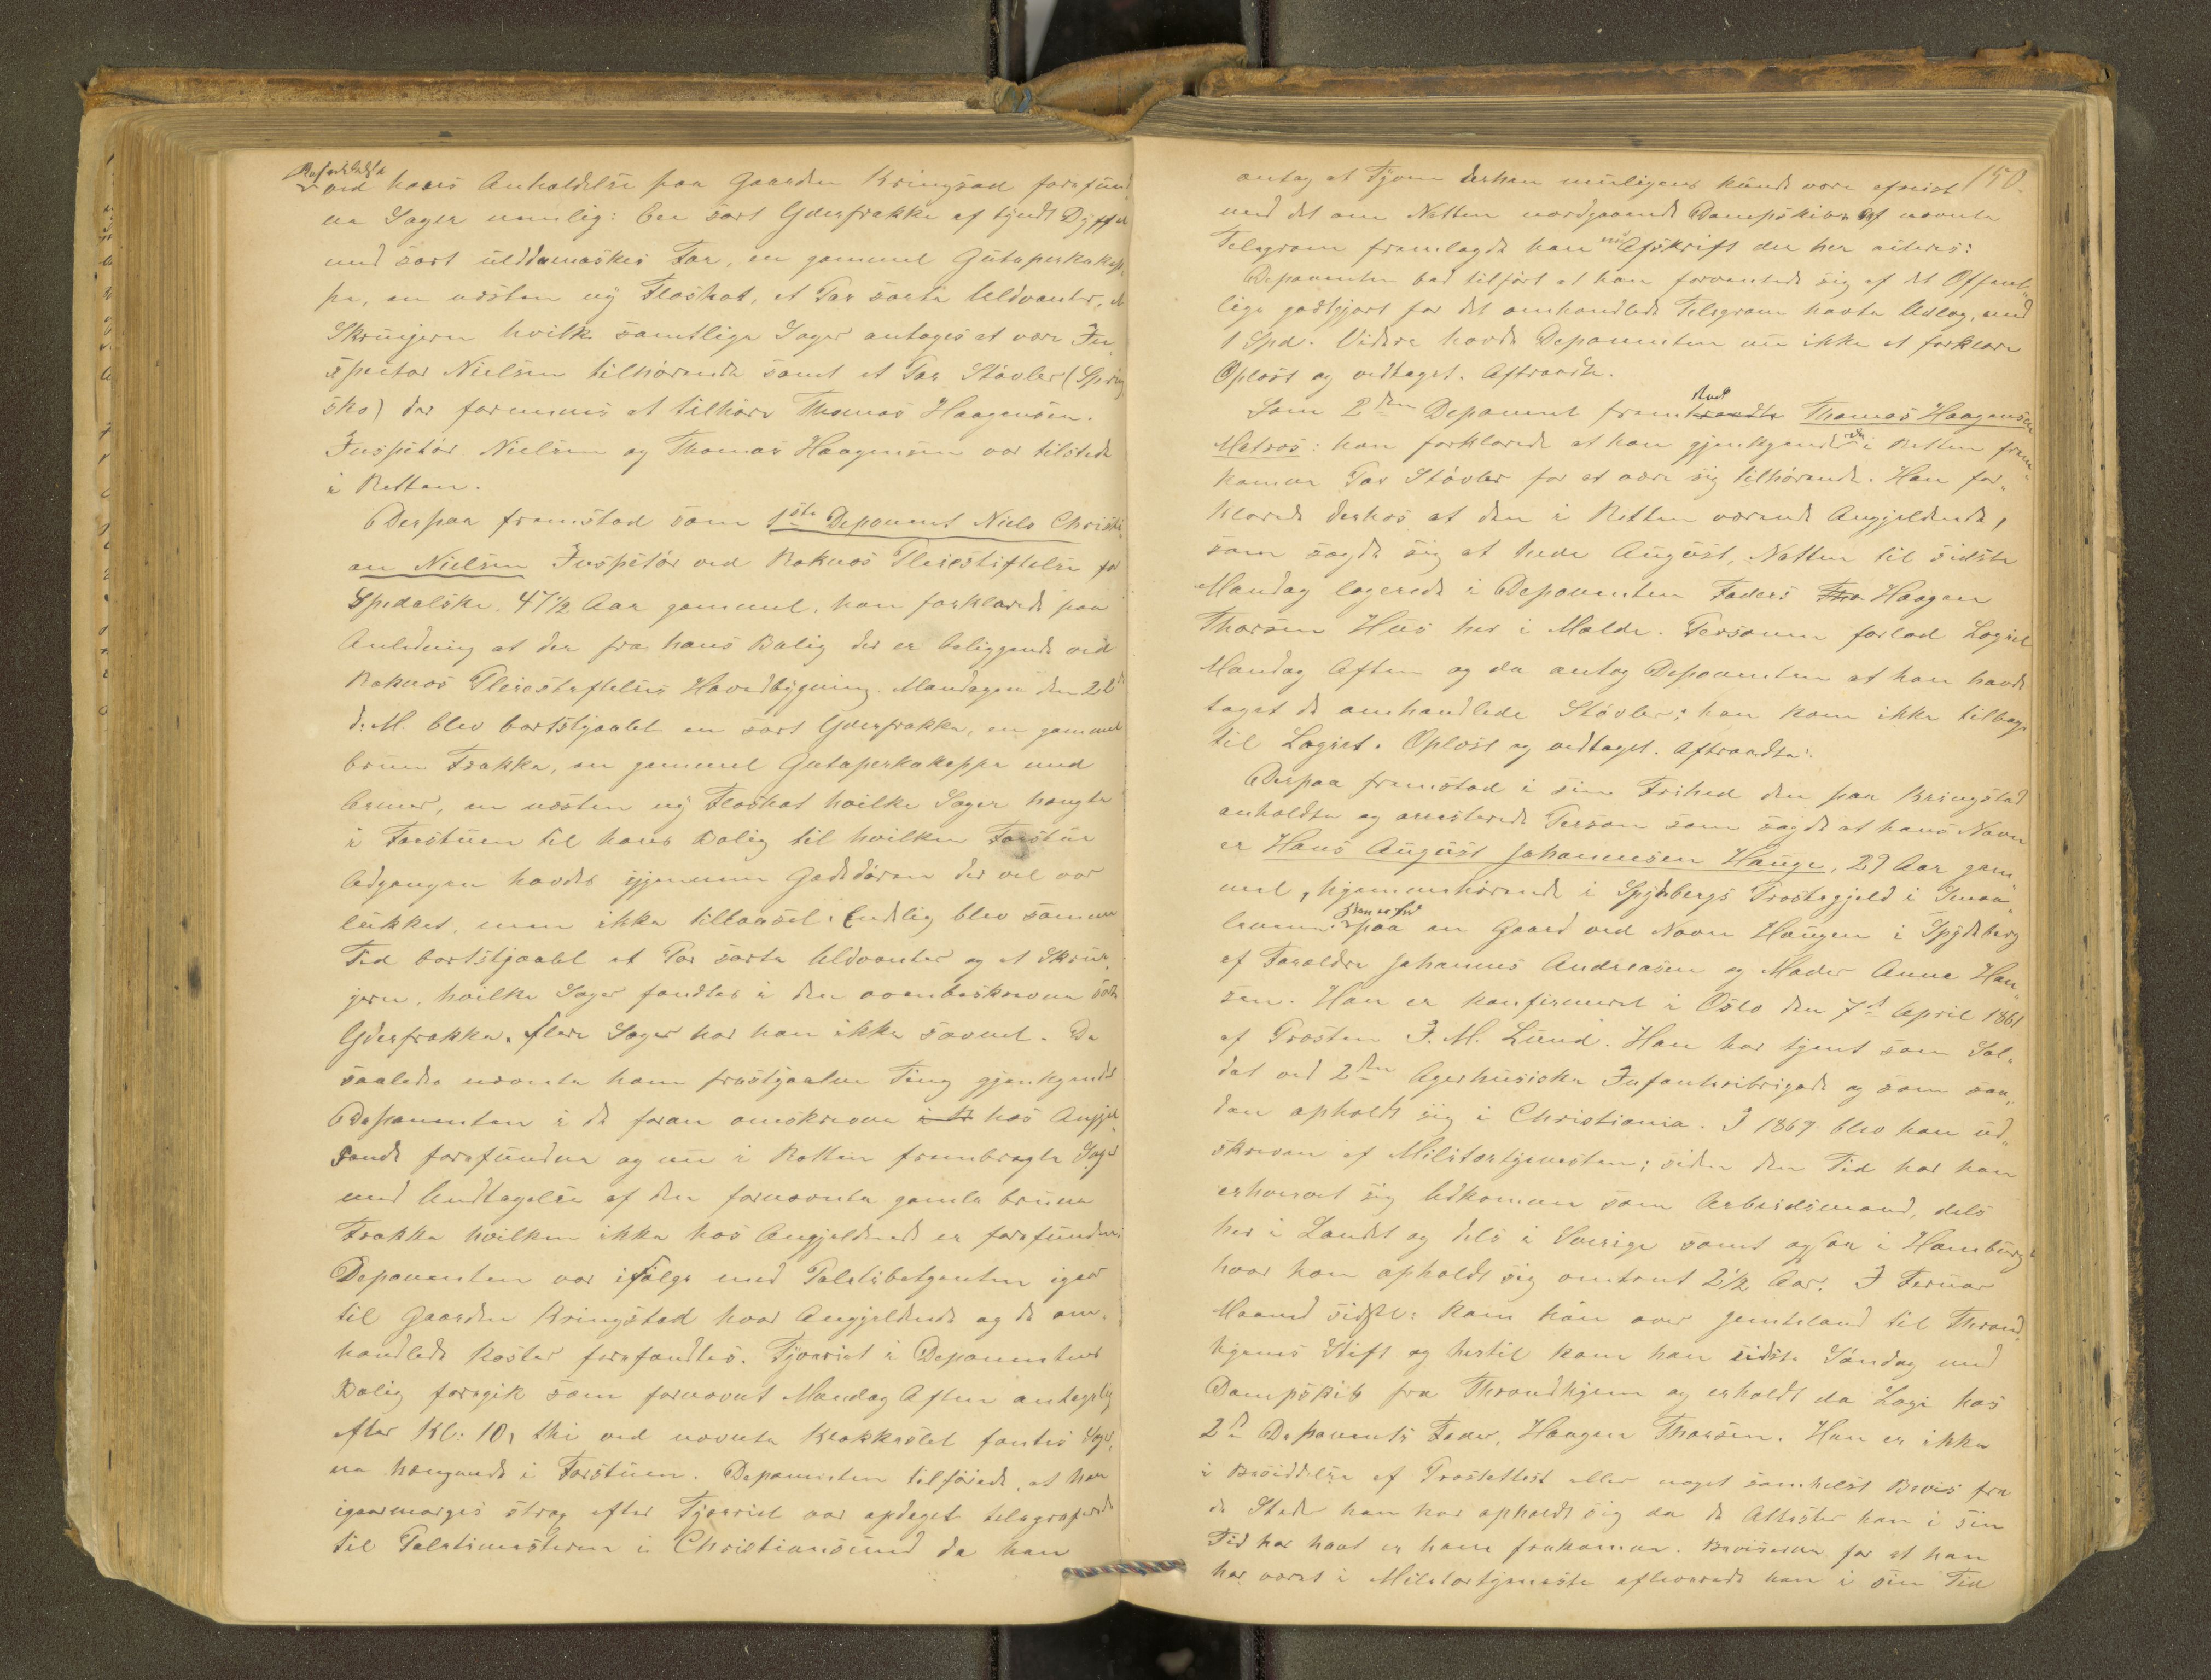 ved hans Anholdelse paa Gaarden Kringstad forefund
ne Sager nemlig: Een sort Yderfrakke af tyndt Dyffel
med sort ulddamaskes Foer, en gammel Gutaperkakap
pe, en næsten ny Floshat, et Par sorte Uldvanter, et
Skruejern hvilke samtlige Sager antages at være In
spector Nielsen tilhørende samt et Par Støvler (Spring
sko) der formenes at tilhøre Thomas Haagensen.
Inspektør Nielsen og Thomas Haagensen var tilstede
i Retten.
Derpaa fremstod som 1ste Deponent Niels Christi
an Nielsen Inspektør ved Reknæs Pleiestiftelse for
Spedalske. 47 1/2 Aar gammel, han forklarede paa
Anledning at der fra hans Bolig der er beliggende ved
Reknæs Pleiestiftelses Hovedbygning Mandagen den 22de
d. M. blev bortstjaalet en sort Yderfrakke, en gammel
bruun Frakke, en gammel Gutaperkakappe med
Ærmer, en næsten ny Floshat hvilke Sager hængte
i Forstuen til hans Bolig til hvilken Forstue
Adgangen havdes igjennem Gadedøren der vel var
lukket, men ikke tillaaset. Endelig blev samme
Tid bortstjaalet et Par sorte Uldvanter og et Skrue
jern, hvilke Sager fandtes i den ovenbeskrevne sorte
Yderfrakke. Flere Sager har han ikke savnet. De
saaledes nævnte ham frastjaalne Ting gjenkjendte
Deponenten i de foran omskrevne hos Angjel
dende forefundne og nu i Retten frembragte Sager
med Undtagelse af den fornævnte gamle brune
Frakke hvilken ikke hos Angjeldende er forefunden.
Deponenten var ifølge med Politibetjenten igaar
til Gaarden Kringstad hvor Angjeldende og de om
handlede Koster forefandtes. Tyveriet i Deponentens
Bolig foregik som fornævnt Mandag Aften antagelig
efter Kl: 10, thi ved nævnte Klokkeslet fandtes Sager
ne hængende i Forstuen. Deponenten tilføiede, at han
igaarmorges strax efter Tyveriet var opdaget telegraferede
til Politimesteren i Christiansund da han
150.
antog at Tyven derhen muligens kunde være afreist
med det om Natten nordgaaende Dampskib. Af nævnte
Telegram fremlagde han en Afskrift der her aiteres:
Deponenten bad tilført at han forventede sig af det Offent
lige godtgjort for det omhandlede Telegram havte Udlæg, med
1 Spd. Videre havde Deponenten nu ikke at forklare
Oplæst og vedtaget. Aftraadte.
Som 2den Deponent fremstod Thomas Haagensen
Matros: han forklarede at han gjenkjender de i Retten frem
komne Par Støvler for at være sig tilhørende. Han for
klarede derhos at den i Retten værende Angjeldende,
som sagde sig at hede August, Natten til sidste
Mandag logerede i Deponentens Faders Haagen
Thorsen Huus her i Molde. Personen forlod Logiet
Mandag Aften og da antog Deponenten at han havde
taget de omhandlede Støvler; han kom ikke tilbage
til Logiet. Oplæst og vedtaget. Aftraadte.
Derpaa fremstod i sin Frihed den paa Kringstad
anholdte og arresterede Person som sagde at hans Navn
er Hans August Johannesen Hauge, 29 Aar gam
mel, hjemmehørende i Spydebergs Præstegjeld i Smaa
lenene. Han er født paa en Gaard ved Navn Haugen i Spydeberg
af Forældre Johannes Andreasen og Moder Anne Han
sen. Han er konfirmeret i Oslo den 7de April 1861
af Presten J. M. Lund. Han har tjent som Sol
dat ved 2den Agerhusiske Infanteribrigade og som saa
dan opholdt sig i Christiania. I 1869 blev han ud
skreven af Militærtjenesten; siden den Tid har han
erhvervet sig Udkommen som Arbeidsmand, dels
her i Landet og dels i Sverige samt ogsaa i Hamburg
hvor han opholdt sig omtrent 2 1/2 Aar. I Feruar
Maaned sidstl: kom han over Jemteland til Thrond
hjems Stift og hertil kom han sidste Søndag med
Dampskib fra Throndhjem og erholdt da Logi hos
2d Deponents Fader, Haagen Thorsen. Han er ikke
i Besiddelse af Præsteattest eller noget somhelst Bevis fra
de Steder han har opholdt sig da de Attester han i sin
Tid har havt er ham frakomne. Beviserne for at han
har været i Militærtjeneste afleverede han i sin Tid